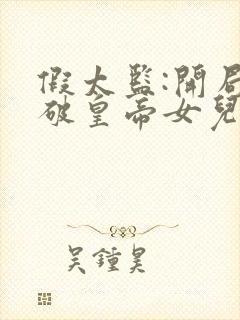 假太監:開局
破皇帝女兒
吴鍾昊